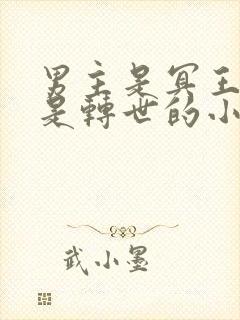 男主是冥王
是轉世的小
武小墨